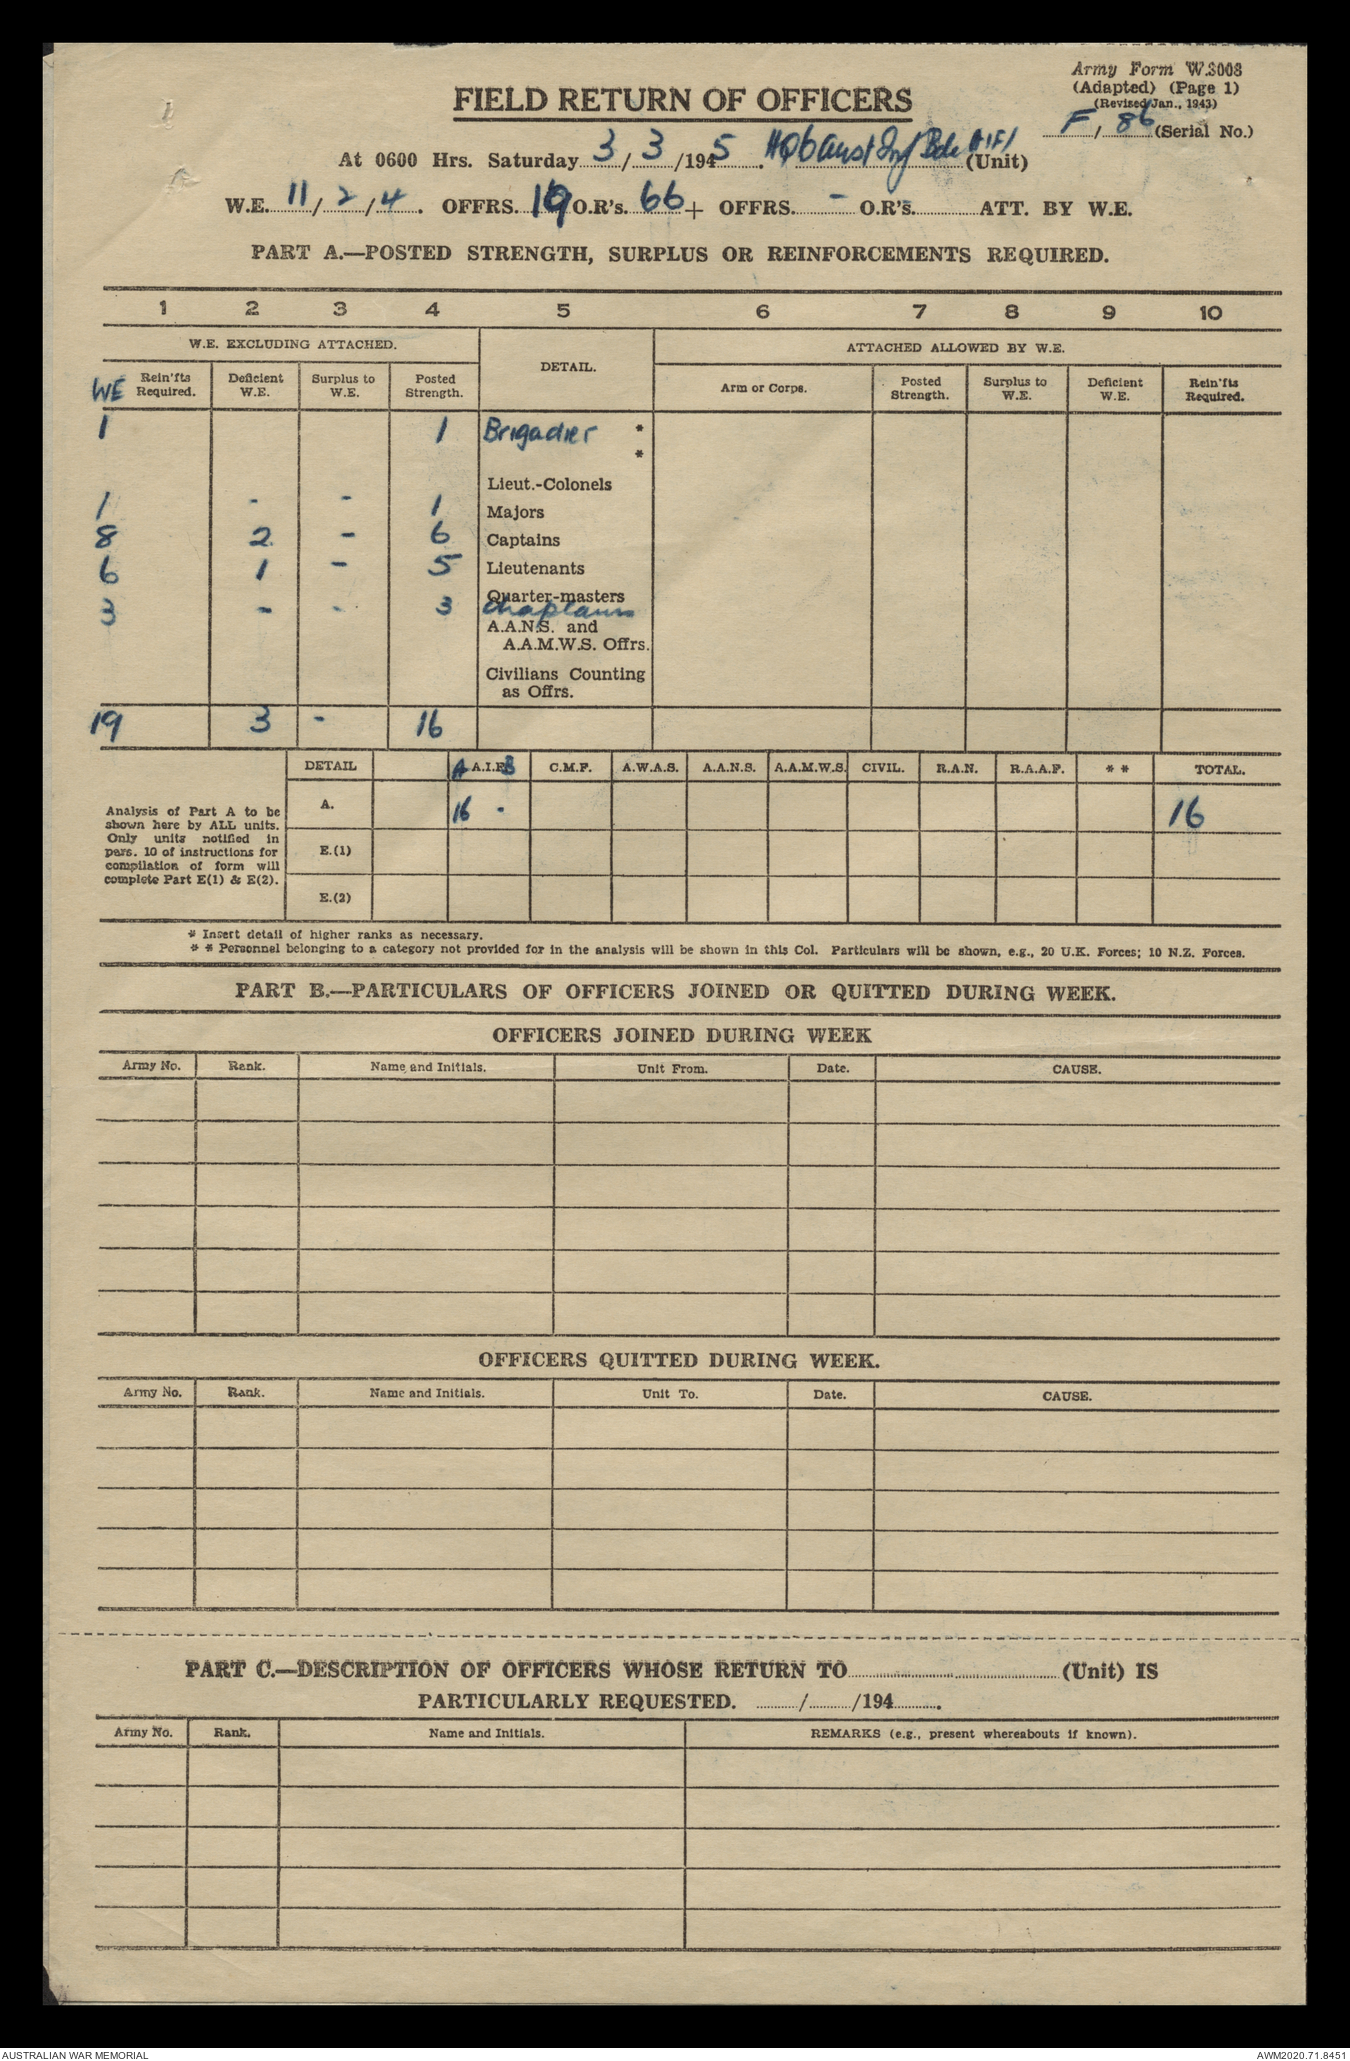 Army Form W.3008
(Adapted) (Page 1)
(Revised Jan., 1943)
FIELD RETURN OF OFFICERS
F / 86 (Serial No.)
At 0600 Hrs. Saturday 3/3/1945. HQ 6 Aust Inf Bde AIF (Unit)
W.E. 11/2/4. OFFRS. 19 O.R's. 66 + OFFRS. - O.R's. ATT. BY W.E.
PART A.—POSTED STRENGTH, SURPLUS OR REINFORCEMENTS REQUIRED.
1 2 3 4 5 6 7 8 9 10
W.E. EXCLUDING ATTACHED. DETAIL. ATTACHED ALLOWED BY W.E.
WE Rein'fts Required. Deficient W.E. Surplus to W.E. Posted Strength. Arm or Corps. Posted Strength. Surplus to W.E. Deficient W.E. Rein'fts Required.
1 1 Brigadier *
*
Lieut.-Colonels
1 - - 1 Majors
8 2 - 6 Captains
6 1 - 5 Lieutenants
Quarter-masters
3 - - 3 Chaplains
A.A.N.S. and
A.A.M.W.S. Offrs.
Civilians Counting
as Offrs.
19 3 - 16
DETAIL A A.I.F. B C.M.F. A.W.A.S. A.A.N.S. A.A.M.W.S. CIVIL. R.A.N. R.A.A.F. * * TOTAL.
A. 16 - 16
Analysis of Part A to be
shown here by ALL units.
Only units notified in
pars. 10 of instructions for
compilation of form will
complete Part E(1) & E(2).
E.(1)
E.(2)
* Insert detail of higher ranks as necessary.
* * Personnel belonging to a category not provided for in the analysis will be shown in this Col. Particulars will be shown, e.g., 20 U.K. Forces; 10 N.Z. Forces.
PART B.—PARTICULARS OF OFFICERS JOINED OR QUITTED DURING WEEK.
OFFICERS JOINED DURING WEEK
Army No. Rank. Name and Initials. Unit From. Date. CAUSE.
OFFICERS QUITTED DURING WEEK.
Army No. Rank. Name and Initials. Unit To. Date. CAUSE.
PART C.—DESCRIPTION OF OFFICERS WHOSE RETURN TO (Unit) IS
PARTICULARLY REQUESTED. / /194 .
Army No. Rank. Name and Initials. REMARKS (e.g., present whereabouts if known).
AUSTRALIAN WAR MEMORIAL AWM2020.71.8451